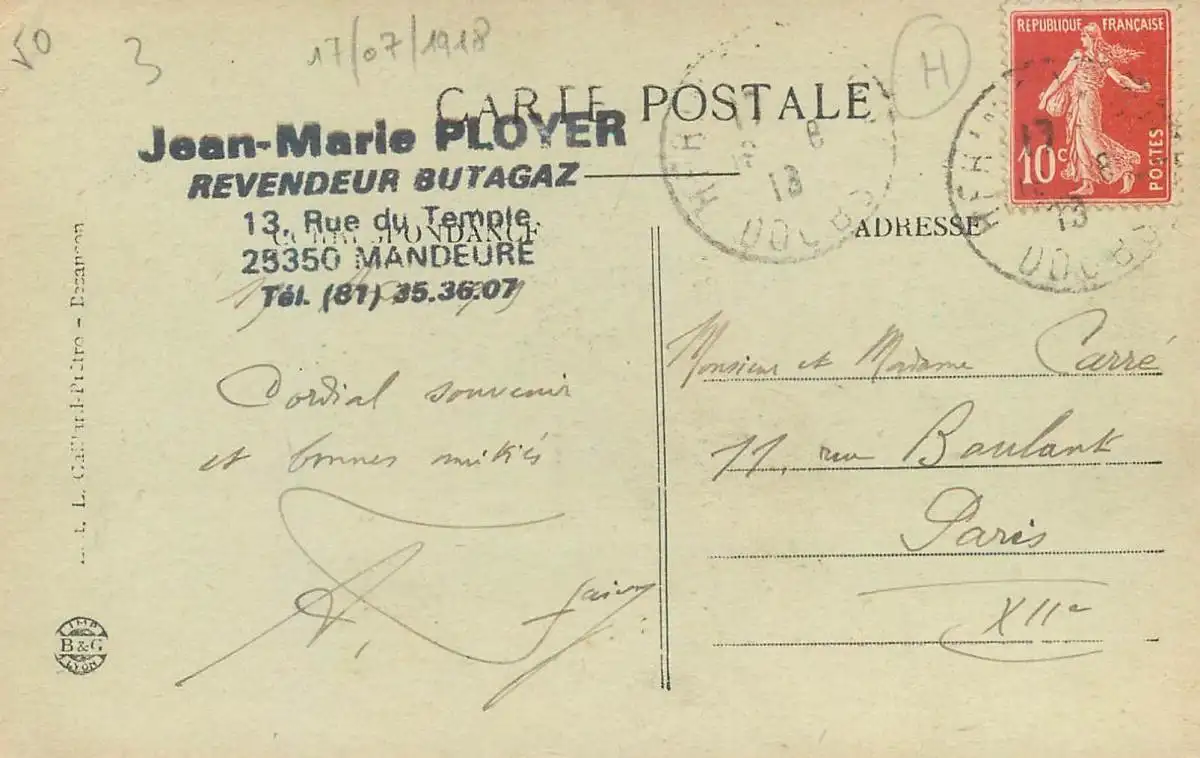 50
3
17/07/1918
H
CARTE POSTALE
RÉPUBLIQUE FRANÇAISE
10c
POSTES
Jean-Marie PLOYER
REVENDEUR BUTAGAZ
13, Rue du Temple
25350 MANDEURE
Tél. (81) 35.36.07
CORRESPONDANCE
ADRESSE
8
13
DOUBS
17
8
13
DOUBS
Cordial souvenir
et bonnes amitiés
Monsieur et Madame Carré
11, rue Boulant
Paris
XIIe
Besançon
IMP.
B & G
LYON